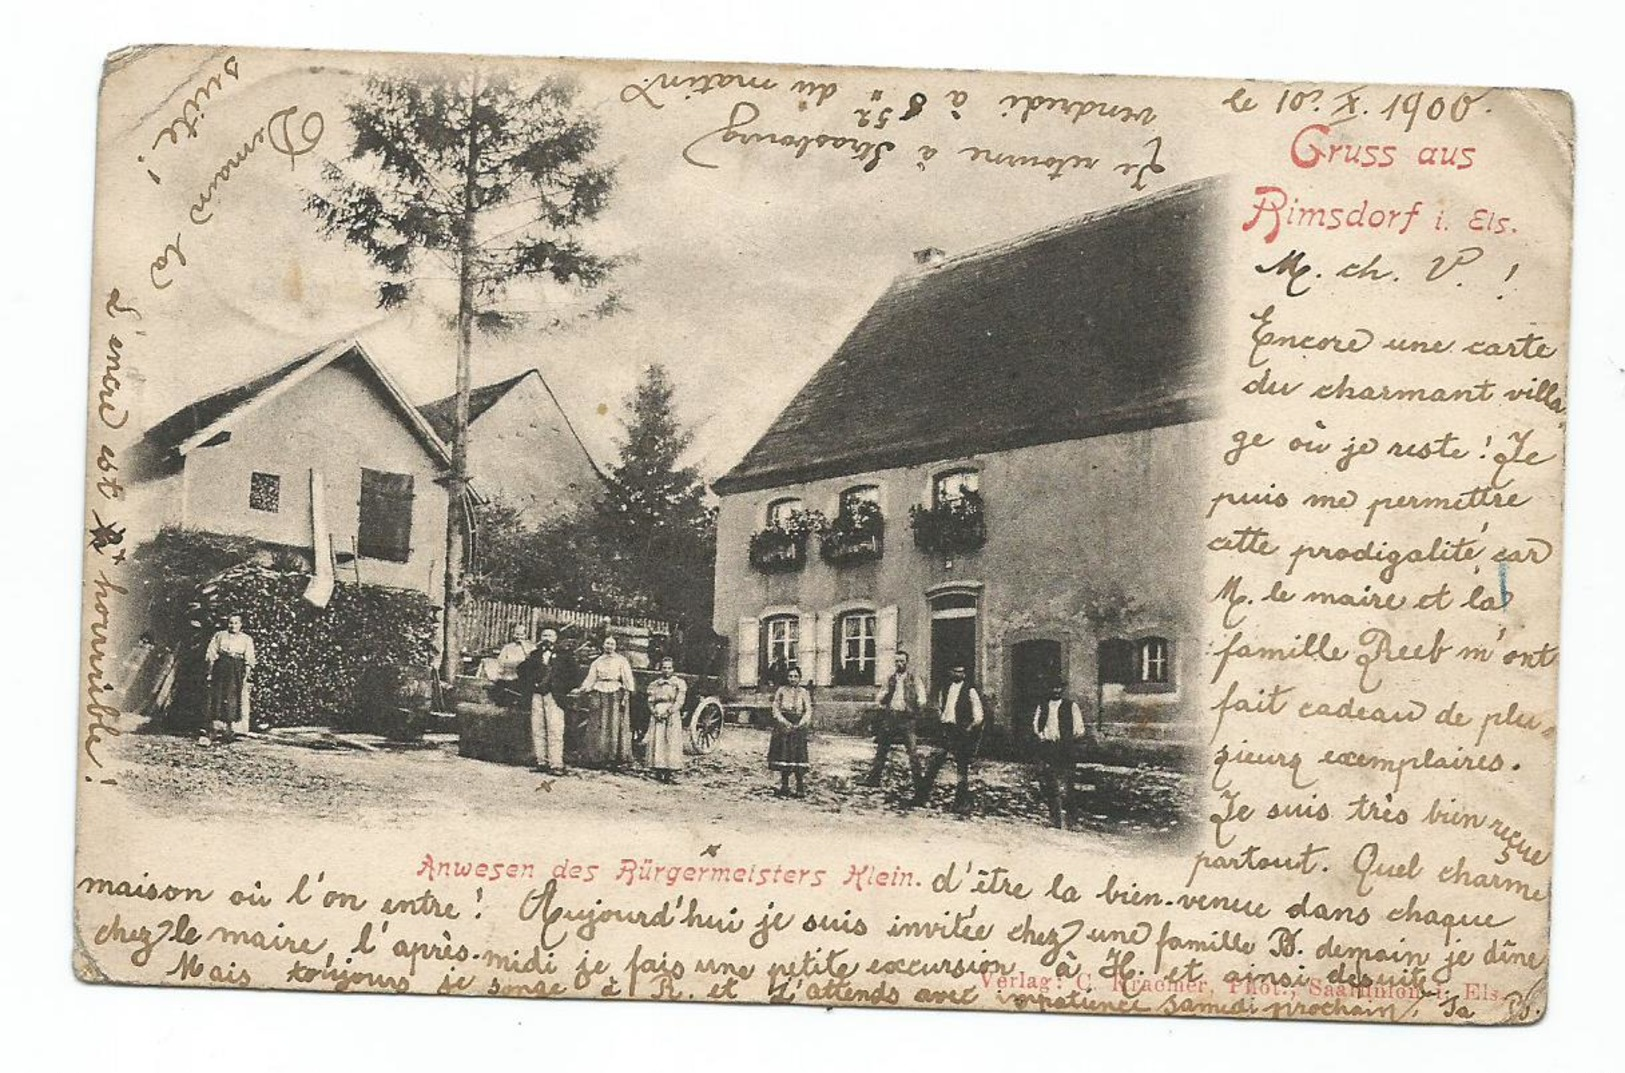 le 10. X. 1900.
Gruss aus
Rimsdorf i. Els.
M. ch. V. !
Encore une carte
du charmant villa-
ge où je reste! Je
puis me permettre
cette prodigalité, car
M. le maire et la
famille Reeb m'ont
fait cadeau de plu-
sieurs exemplaires.
Je suis très bien reçue
partout. Quel charme
Anwesen des Bürgermeisters Klein.
d'être la bien-venue dans chaque
maison où l'on entre! Aujourd'hui je suis invitée chez une famille B. demain je dîne
chez le maire, l'après-midi je fais une petite excursion à H. et ainsi de suite.
Mais toujours je songe à R. et j'attends avec impatience samedi prochain. Ta B.
Verlag: C. Kraemer, Phot., Saarunion i. Els.
Je retourne à Strasbourg
vendredi à 8 52 du matin
Demain la
suite!
L'encre est horrible!